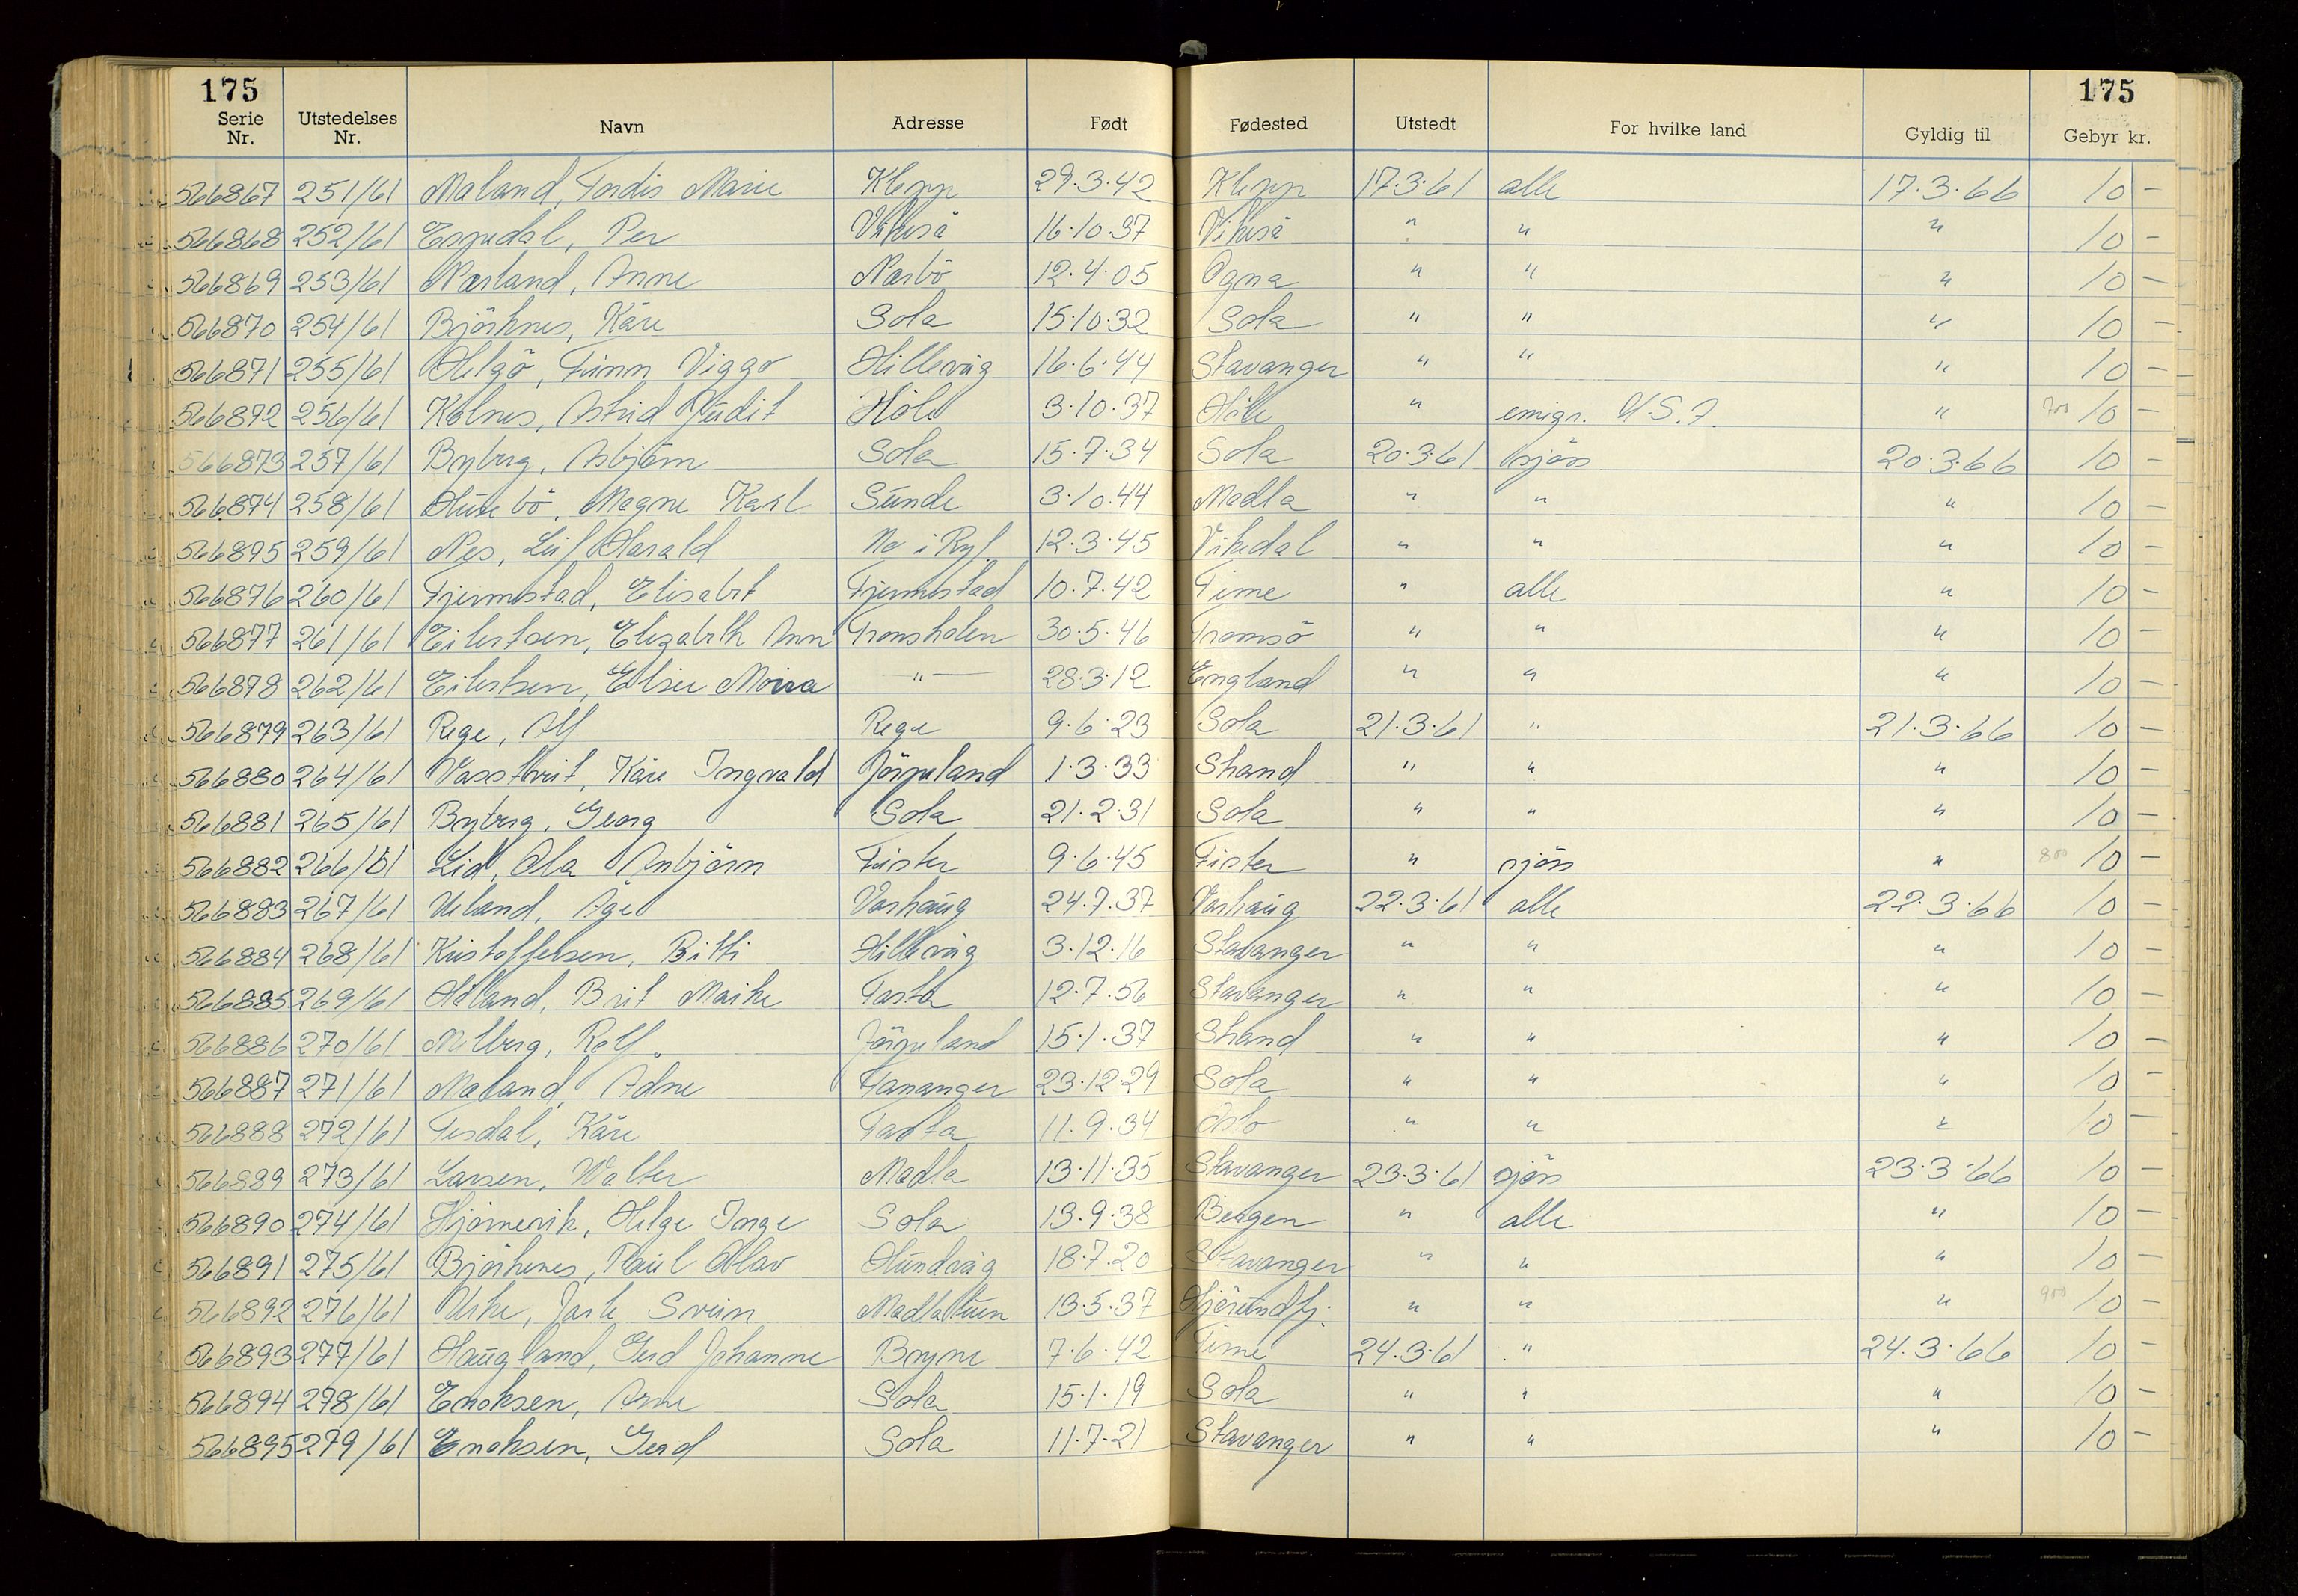 175 175
Serie Nr. Utstedelses Nr. Navn Adresse Født Fødested Utstedt For hvilke land Gyldig til Gebyr kr.
566867 251/61 Maland, Tordis Marie Klepp 29.3.42 Klepp 17.3.61 alle 17.3.66 10 -
566868 252/61 Espedal, Per Vikeså 16.10.37 Vikeså " " " 10 -
566869 253/61 Nærland, Anne Nærbö 12.4.05 Ogna " " " 10 -
566870 254/61 Björknes, Kåre Sola 15.10.32 Sola " " " 10 -
566871 255/61 Helgö, Finn Viggo Hillevåg 16.6.44 Stavanger " " " 10 -
566872 256/61 Kolnes, Astrid Judit Höle 3.10.37 Höle " emigr. U.S.A. " 700 10 -
566873 257/61 Byberg, Asbjörn Sola 15.7.34 Sola 20.3.61 sjöss 20.3.66 10 -
566874 258/61 Husebö, Magne Karl Sunde 3.10.44 Madla " " " 10 -
566895 259/61 Nes, Leif Harald Ne i Ryf 12.3.45 Vikedal " " " 10 -
566876 260/61 Fjermestad, Elisabet Fjermestad 10.7.42 Time " alle " 10 -
566877 261/61 Eilertsen, Elizabeth Ann Transholen 30.5.46 Tromsö " " " 10 -
566878 262/61 Eilertsen, Elsie Moira " 28.3.12 England " " " 10 -
566879 263/61 Rege, Alf Rege 9.6.23 Sola 21.3.61 " 21.3.66 10 -
566880 264/61 Vasstveit, Kåre Ingvald Jörpeland 1.3.33 Strand " " " 10 -
566881 265/61 Byberg, Georg Sola 21.2.31 Sola " " " 10 -
566882 266/61 Lid, Ola Arnbjörn Fister 9.6.45 Fister " sjöss " 800 10 -
566883 267/61 Ueland, Åge Varhaug 24.9.37 Varhaug 22.3.61 alle 22.3.66 10 -
566884 268/61 Kristoffersen, Bitti Hillevåg 3.12.16 Stavanger " " " 10 -
566885 269/61 Håland, Brit Marthe Tasta 12.7.56 Stavanger " " " 10 -
566886 270/61 Melberg, Rolf Jörpeland 15.1.37 Strand " " " 10 -
566887 271/61 Meland, Adne Tananger 23.12.29 Sola " " " 10 -
566888 272/61 Tesdal, Kåre Tasta 11.9.34 Oslo " " " 10 -
566889 273/61 Larsen, Walter Madla 13.11.35 Stavanger 23.3.61 sjöss 23.3.66 10 -
566890 274/61 Hjörnevik, Helge Inge Sola 13.9.38 Bergen " alle " 10 -
566891 275/61 Björkenes, Paul Olav Hundvåg 18.7.20 Stavanger " " " 10 -
566892 276/61 Urke, Jarle Svein Madlatuen 13.5.37 Hjörundfj. " " " 900 10 -
566893 277/61 Haugland, Gerd Johanne Bryne 7.6.42 Time 24.3.61 " 24.3.66 10 -
566894 278/61 Enoksen, Arne Sola 15.1.19 Sola " " " 10 -
566895 279/61 Enoksen, Gerd Sola 11.7.21 Stavanger " " " 10 -